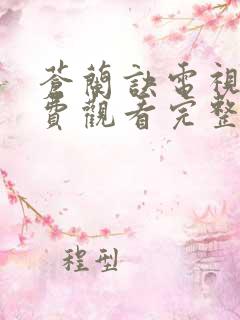 蒼蘭訣電視
費觀看完整
程型